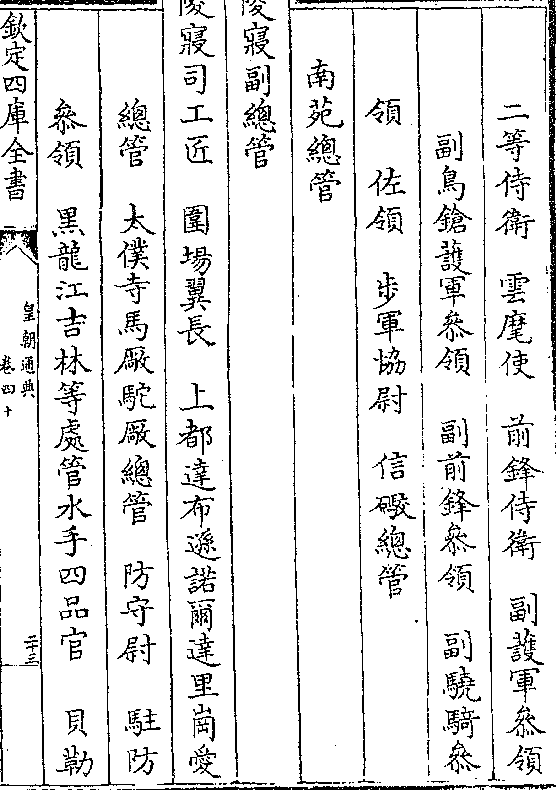 二等侍衛　雲麾使　前鋒侍衛　副護軍叅領
副鳥鎗護軍叅領　副前鋒叅領　副驍騎叅
領　佐領　步軍協尉　信礮總管
南苑總管
陵寢副總管
陵寢司工匠　圍場翼長　上都達布遜諾爾達里崗愛
總管　太僕寺馬厰駝厰總管　防守尉　駐防
叅領　黑龍江吉林等處管水手四品官　貝勒
欽定四庫全書
皇朝通典
卷四十
二十三